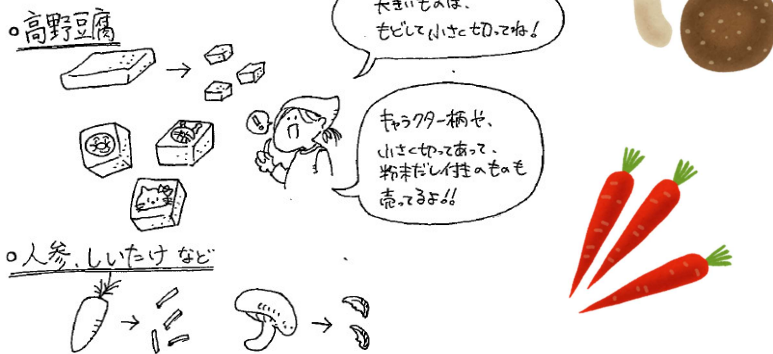 ○高野豆腐
大きいものは、
もどして小さく切ってね!
!
キャラクター柄や、
小さく切ってあって、
粉末だし付きのものも
売ってるよ!!
○人参、しいたけ など